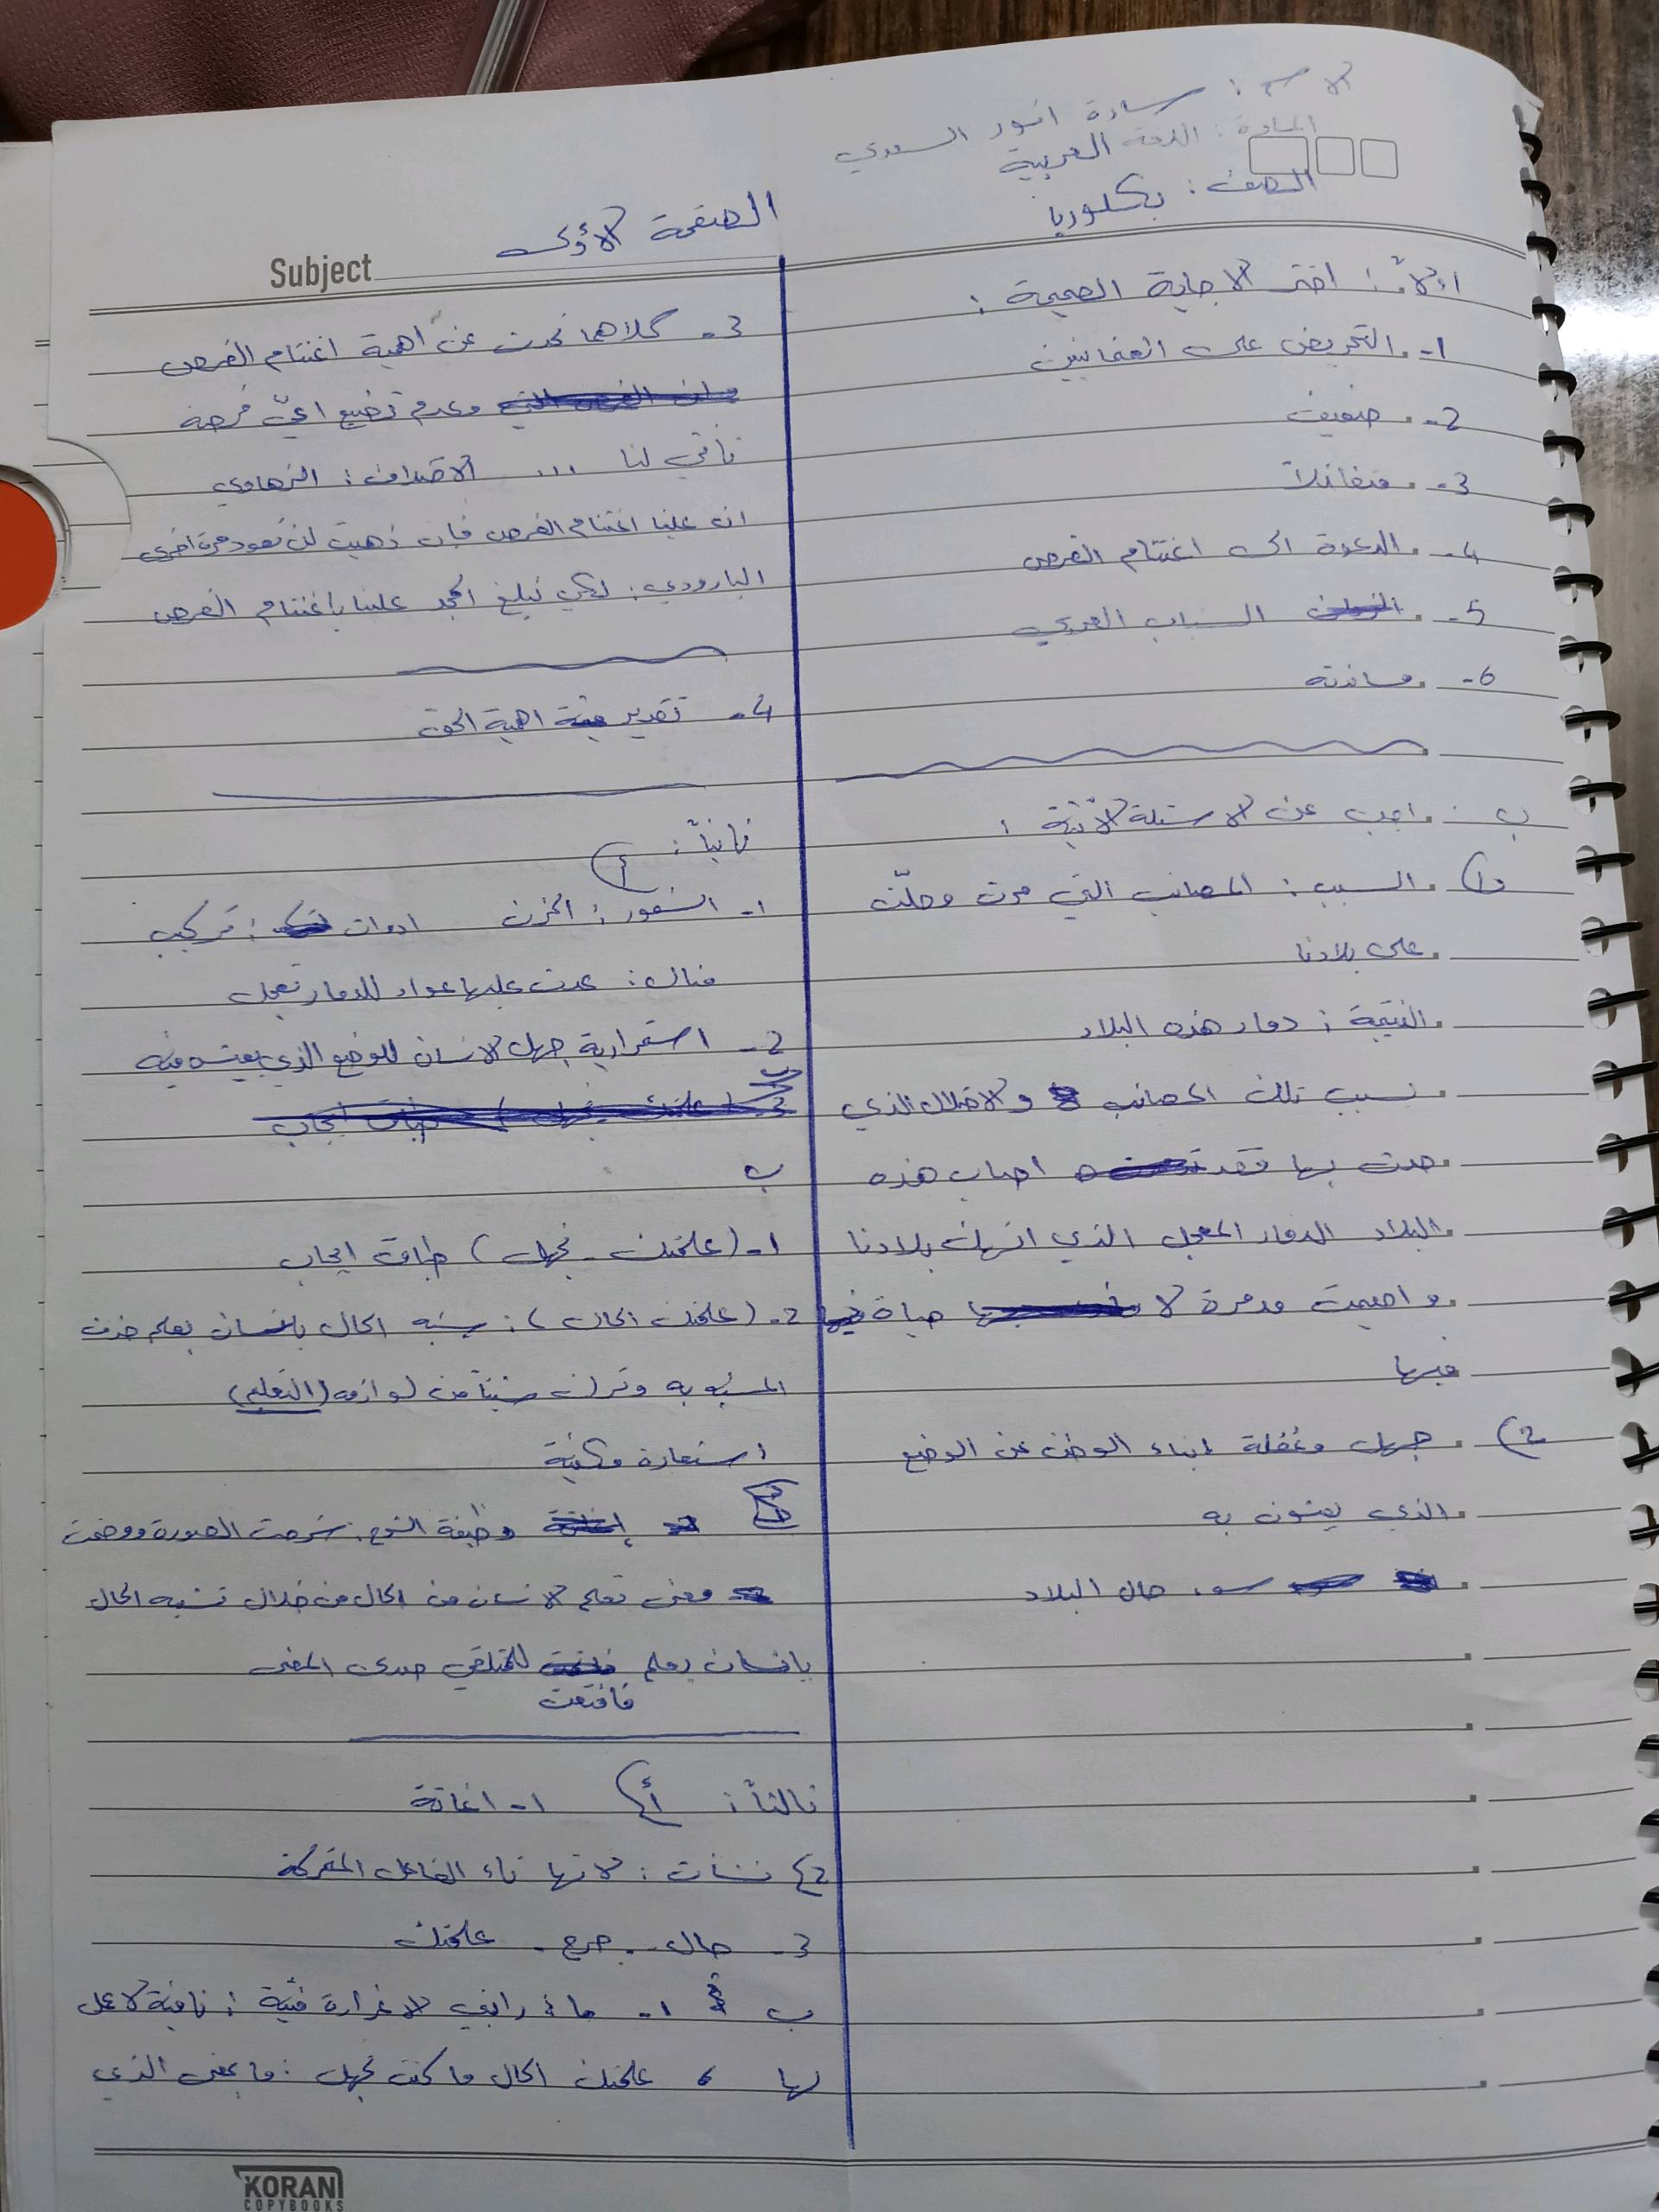 الاسم : سارة انور السعدي
المادة : اللغة العربية
الصف : بكلوريا
الصفحة الأولى
Subject
اولاً : اختر الاجابة الصحيحة :
1- التحريض على العثمانيين
2- ضعيف
3- متفائلاً
4- الدعوة الى اغتنام الفرص
5- الشباب العربي
6- ساندته
ب - اجب عن الاسئلة الآتية :
1) السبب : المصائب التي مرت وحلّت
على بلادنا
النتيجة : دمار هذه البلاد
بسبب تلك المصائب والاحتلال الذي
حدث بها فقد اصاب هذه
البلاد الدمار المعجل الذي انهك بلادنا
واصبحت مدمرة لا حياة
فيها
2) جهل وغفلة ابناء الوطن عن الوضع
الذي يعيشون به
سوء حال البلاد
3- كلاهما تحدث عن اهمية اغتنام الفرص
وعدم تضييع ايّ فرصة
تأتي لنا ... الاختلاف : الزهاوي
ان علينا اغتنام الفرص فإن ذهبت لن تعود مرة اخرى
البارودي : لكي نبلغ المجد علينا باغتنام الفرص
4- تقدير اهمية الحق
ثانياً :
أ)
1- الشعور : الحزن ادوات : تركيب
مثال : عدت عليها عواد للدمار تعجل
2- استمرارية جهل الانسان للوضع الذي يعيش فيه
ب
1- (علمتك - تجهل) طباق ايجاب
2- (علمتك الحال) : شبه الحال بإنسان يعلم حذف
المشبه به وترك شيئاً من لوازمه (التعليم)
استعارة مكنية
وظيفة الشرح : شرحت الصورة ووضحت
معنى تعلم الانسان من الحال من خلال تشبيه الحال
بإنسان يعلم للمتلقي صدى المعنى
فاقتعت
ثالثاً : أ) 1- اغاثة
2) نشأت : لانها تاء الفاعل المتحركة
3- حال - جرح - علمتك
ب 1- ما : رابني الا غرارة فتية : نافية لا عمل
لها ، علمتك الحال ما كنت تجهل : ما بمعنى الذي
KORANI
COPYBOOKS